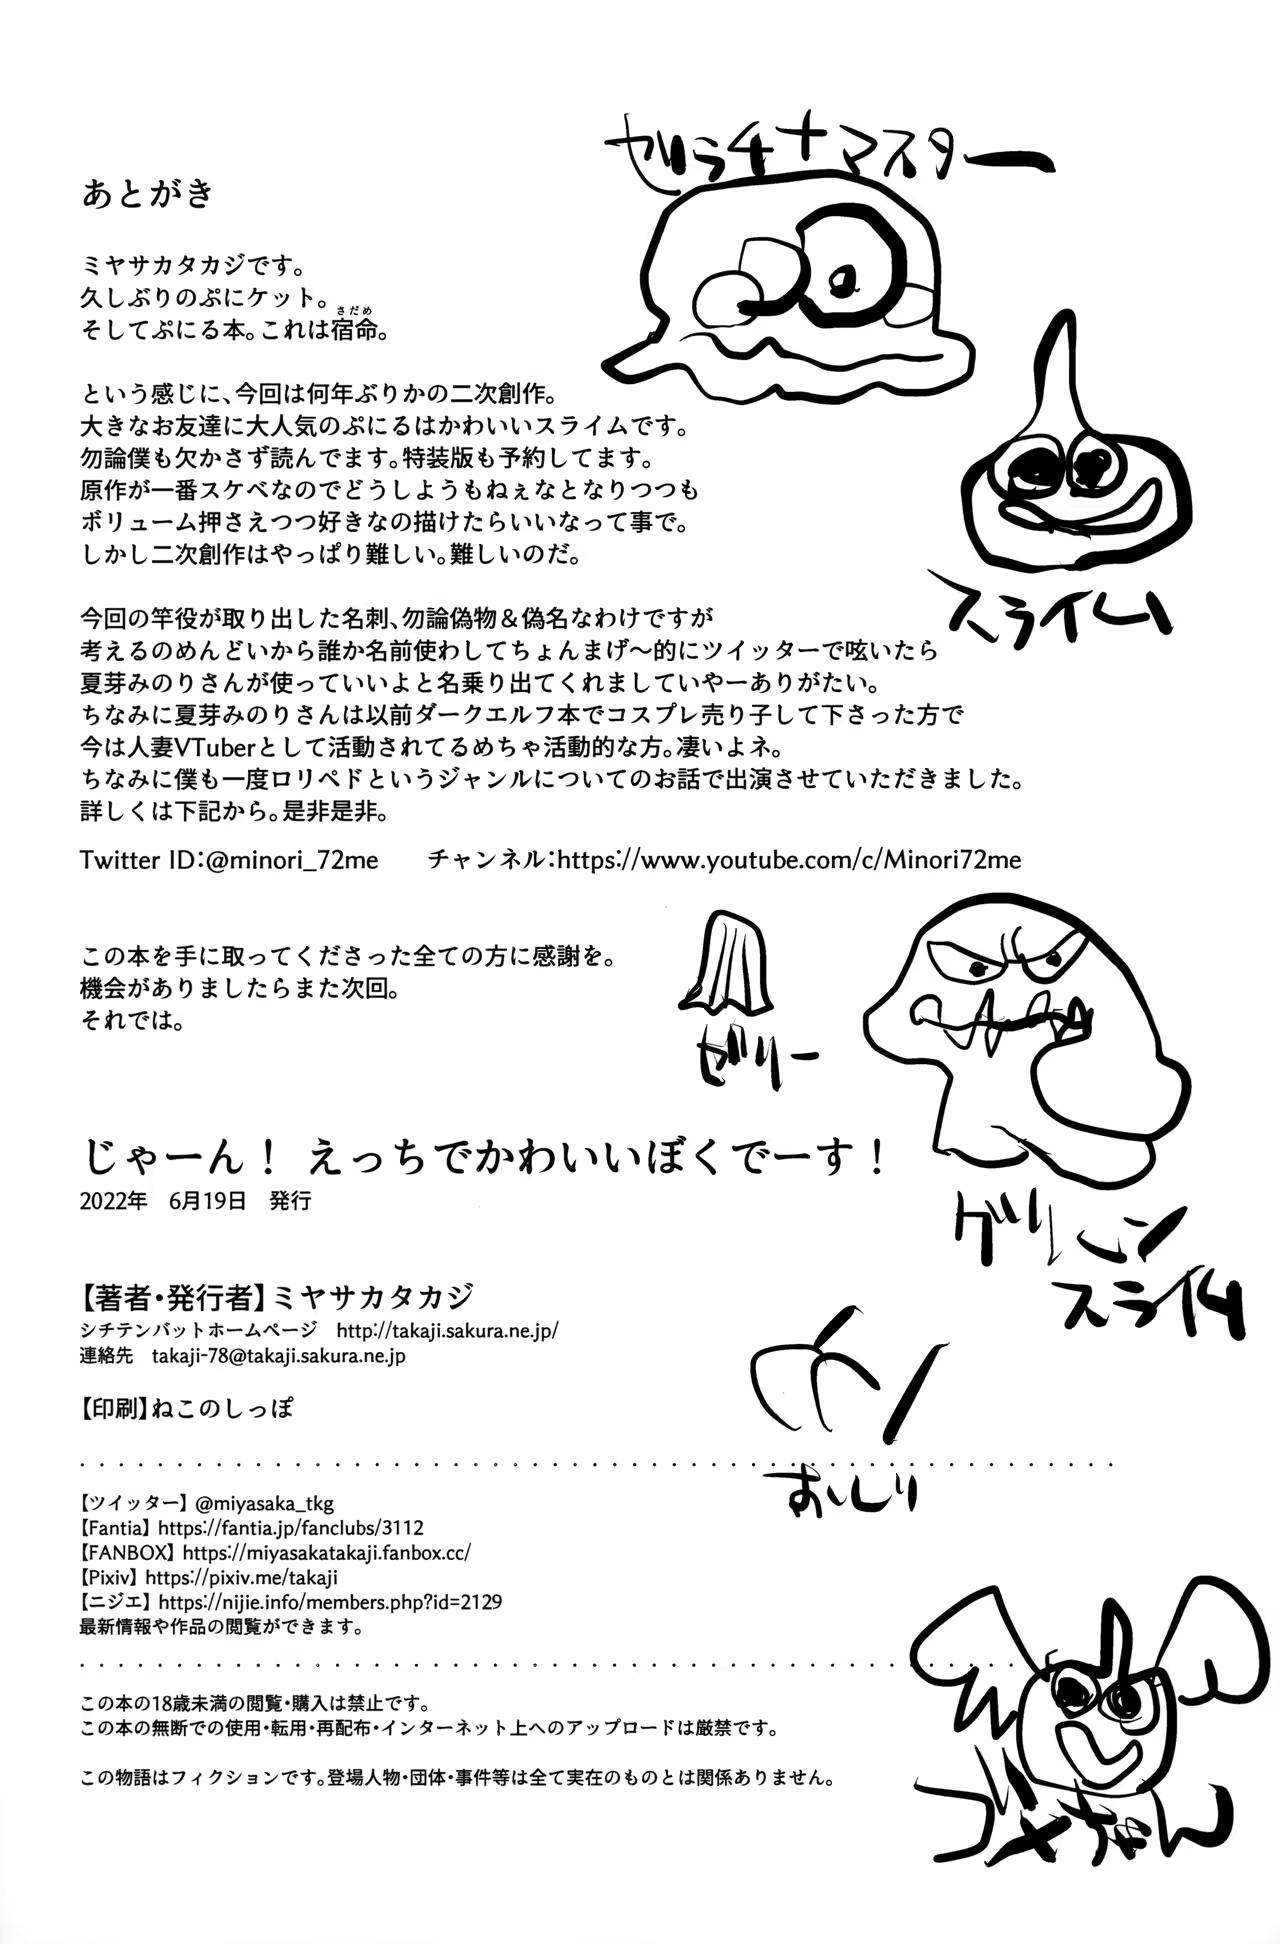 ゼリラチナマスター
あとがき
ミヤサカタカジです。
久しぶりのぷにケット。
そしてぷにる本。これは宿命。
さだめ
という感じに、今回は何年ぶりかの二次創作。
大きなお友達に大人気のぷにるはかわいいスライムです。
勿論僕も欠かさず読んでます。特装版も予約してます。
原作が一番スケベなのでどうしようもねぇなとなりつつも
ボリューム押さえつつ好きなの描けたらいいなって事で。
しかし二次創作はやっぱり難しい。難しいのだ。
スライム
今回の竿役が取り出した名刺、勿論偽物＆偽名なわけですが
考えるのめんどいから誰か名前使わしてちょんまげ〜的にツイッターで呟いたら
夏芽みのりさんが使っていいよと名乗り出てくれましていやーありがたい。
ちなみに夏芽みのりさんは以前ダークエルフ本でコスプレ売り子して下さった方で
今は人妻VTuberとして活動されてるめちゃ活動的な方。凄いよネ。
ちなみに僕も一度ロリペドというジャンルについてのお話で出演させていただきました。
詳しくは下記から。是非是非。
Twitter ID：@minori_72me　チャンネル：https://www.youtube.com/c/Minori72me
この本を手に取ってくださった全ての方に感謝を。
機会がありましたらまた次回。
それでは。
ゼリー
じゃーん！ えっちでかわいいぼくでーす！
2022年　6月19日　発行
グリーン
スライム
【著者・発行者】ミヤサカタカジ
シチテンバットホームページ　http://takaji.sakura.ne.jp/
連絡先　takaji-78@takaji.sakura.ne.jp
【印刷】ねこのしっぽ
おしり
【ツイッター】@miyasaka_tkg
【Fantia】https://fantia.jp/fanclubs/3112
【FANBOX】https://miyasakatakaji.fanbox.cc/
【Pixiv】https://pixiv.me/takaji
【ニジエ】https://nijie.info/members.php?id=2129
最新情報や作品の閲覧ができます。
この本の18歳未満の閲覧・購入は禁止です。
この本の無断での使用・転用・再配布・インターネット上へのアップロードは厳禁です。
この物語はフィクションです。登場人物・団体・事件等は全て実在のものとは関係ありません。
ゴメちゃん